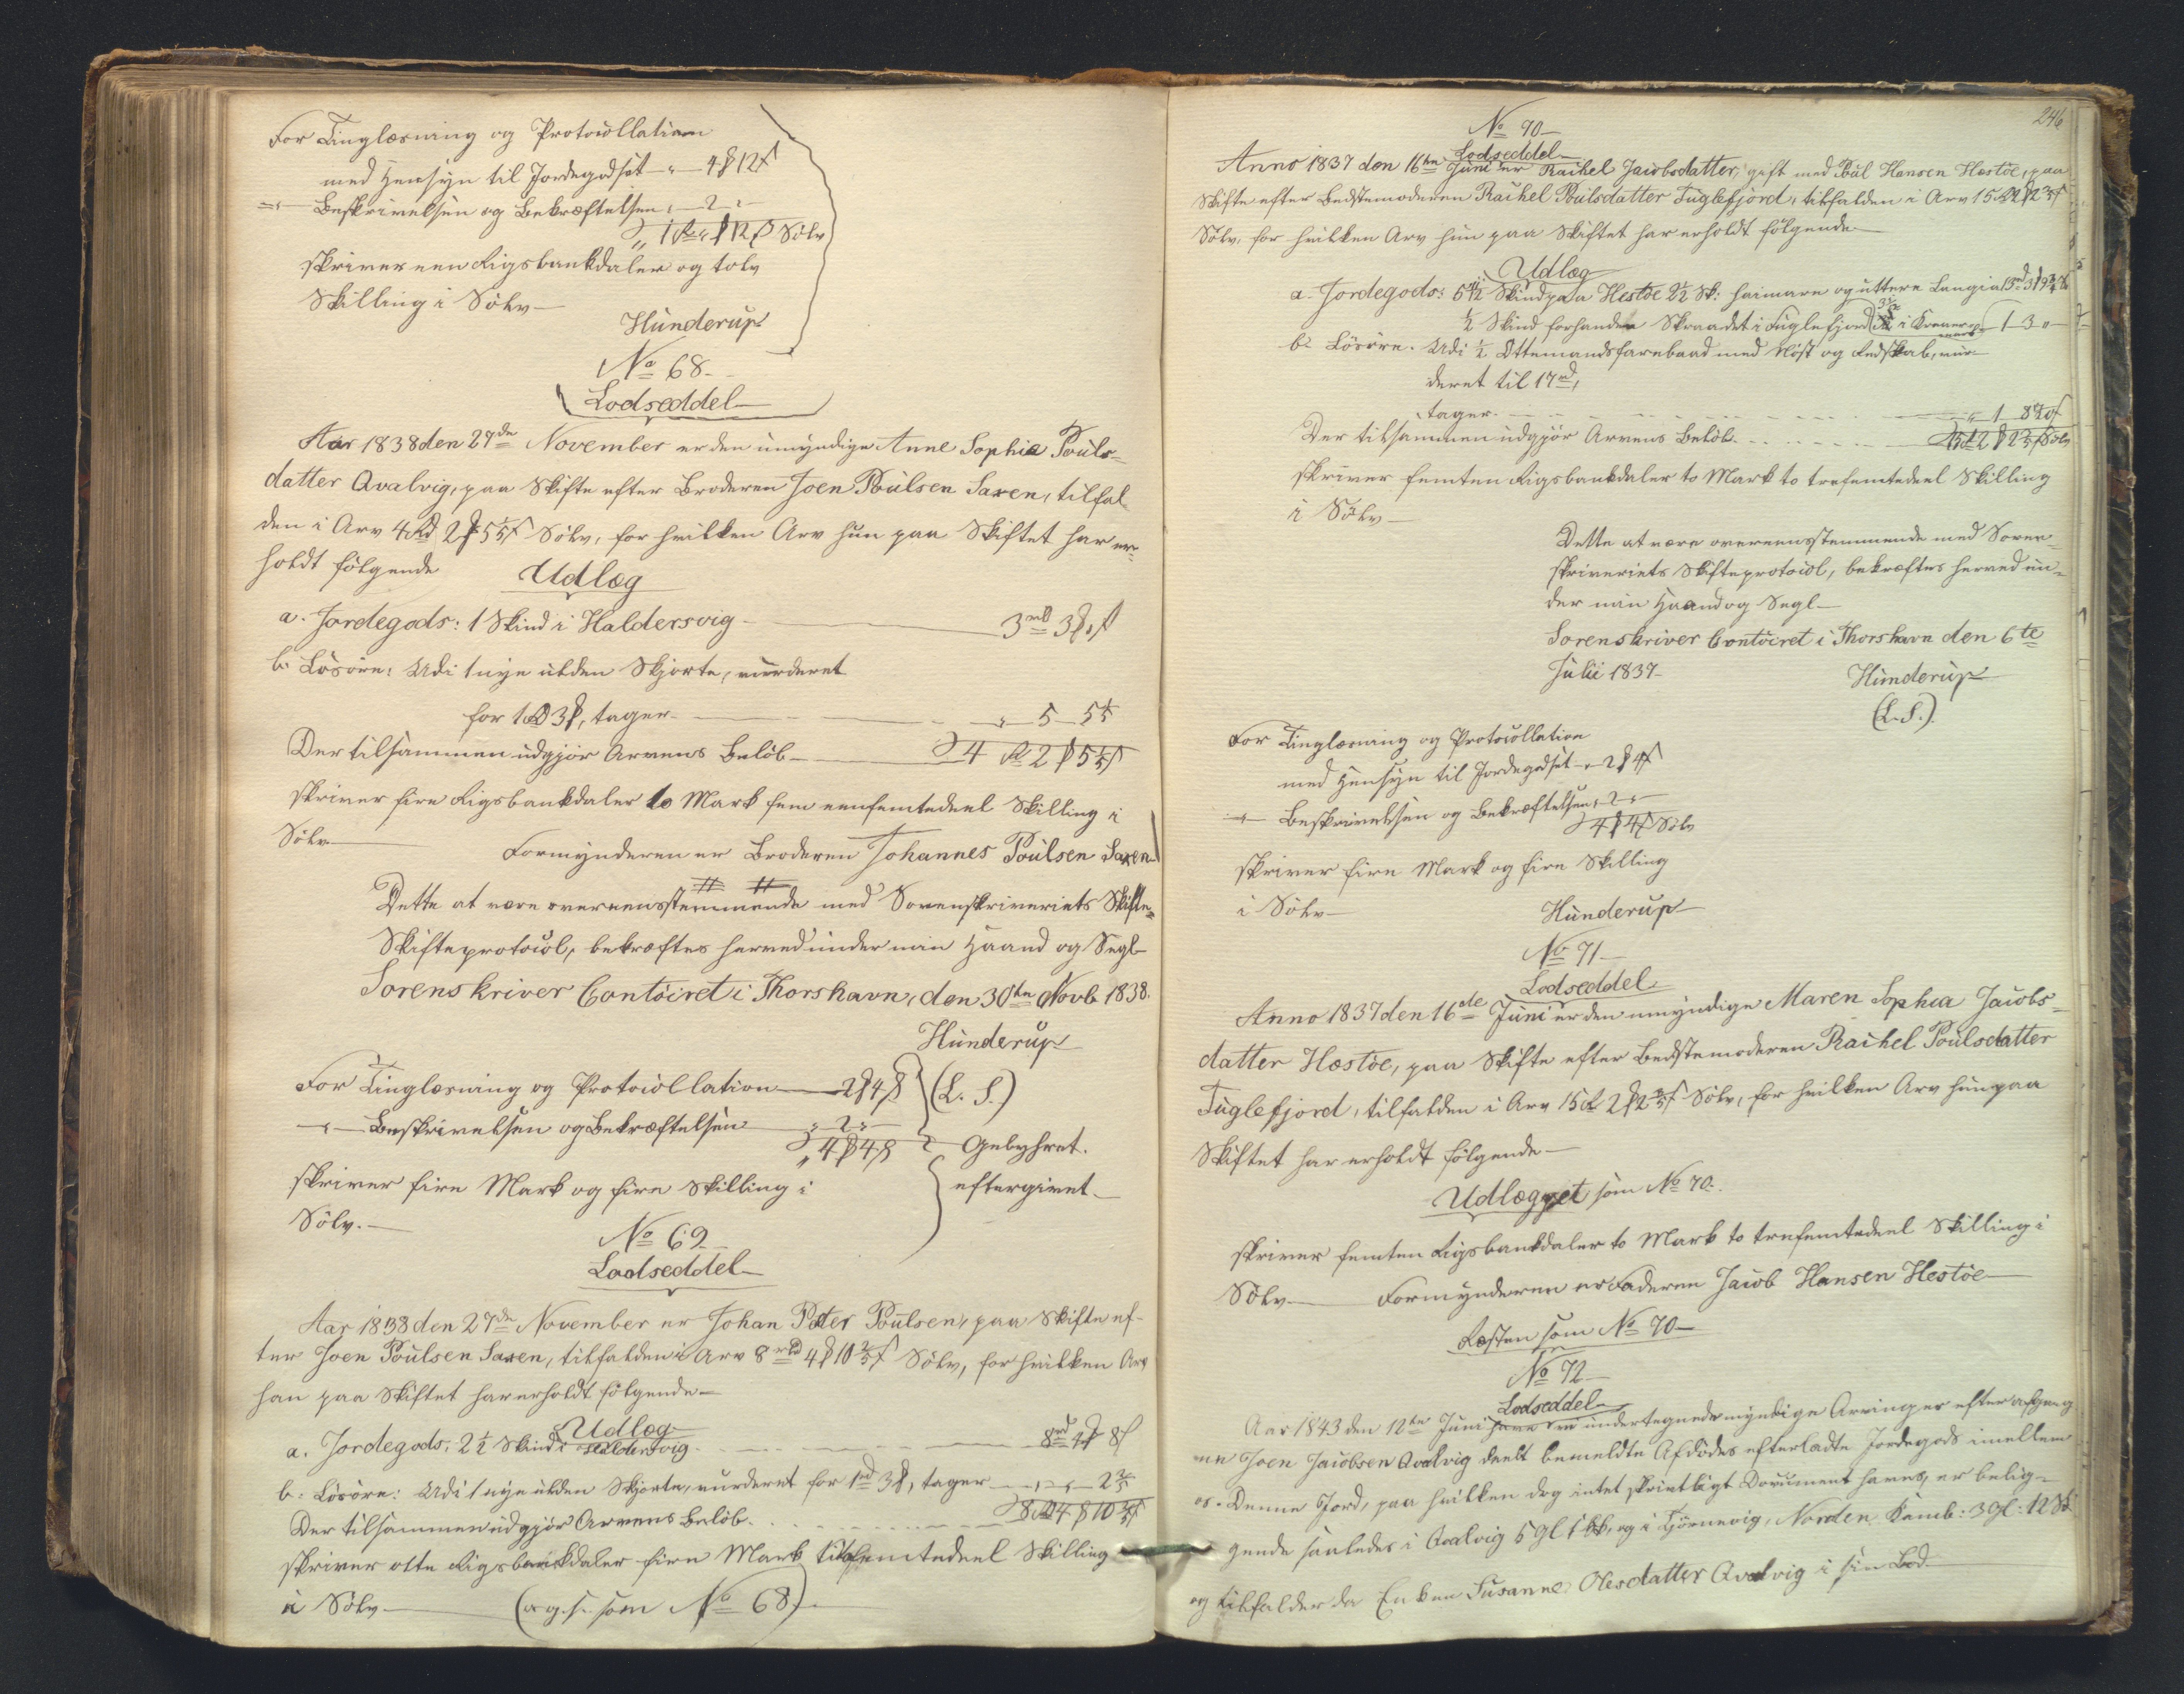 For Tinglæsning og Protocollation
med Hensyn til Jordegodset — " — 4 ₻ 12 ß
— " — Beskrivelsen og Bekræftelsen " — 2 " —
" 1 Rbd " ₻ 12 ß Sölv
skriver een Rigsbankdaler og tolv
Skilling i Sölv —
Hunderup
No 68.
Lodseddel
Aar 1838 den 27de November er den umyndige Anne Sophia Pouls=
datter Qvalvig, paa Skifte efter Broderen Joen Poulsen Saxen, tilfal
den i Arv 4 Rbd 2 ₻ 5 1/5 ß Sölv, for hvilken Arv hun paa Skiftet har er=
holdt fölgende Udlæg
a. Jordegods: 1 Skind i Haldersvig — 3 rbd 3 ₻ " ß
b. Lösöre: Udi 1 nye ulden Skjorte, vurderet
for 1 rbd 3 ₻, tager — " — 5 — 5 1/5
Der tilsammen udgjör Arvens Belöb — 4 Rbd 2 ₻ 5 1/5 ß
skriver fire Rigsbankdaler to Mark fem eenfemtedeel Skilling i
Sölv — Formynderen er Broderen Johannes Poulsen Saxen
Dette at være overeensstemmende med Sorenskriveriets Skifte=
Skifteprotocol, bekræftes herved under min Haand og Segl
Sorenskriver Contoiret i Thorshavn, den 30te Novb 1838.
Hunderup
For Tinglæsning og Protocollation — 2 ₻ 4 ß (L. S.)
— " — Beskrivelsen og Bekræftelsen — " 2 " —
" 4 ₻ 4 ß Gebyhret.
skriver fire Mark og fire Skilling i eftergivet —
Sölv. —
No 69
Lodseddel
Aar 1838 den 27de November er Johan Peter Poulsen, paa Skifte ef-
ter Joen Poulsen Saxen, tilfalden i Arv 8 rbd 4 ₻ 10 2/5 ß Sölv, for hvilken Arv
han paa Skiftet har erholdt fölgende —
Udlæg
a. Jordegods: 2 1/2 Skind i Haldersvig — 8 rbd 4 ₻ 8 ß
b. Lösöre: Udi 1 nye ulden Skjorte, vurderet for 1 rbd 3 ₻, tager — " — " — 2 2/5
Der tilsammen udgjör Arvens Belöb. 8 Rbd 4 ₻ 10 2/5 ß
skriver otte Rigsbankdaler fire Mark Skilling
i Sölv — (o. g. s. som No 68).
246
No 70 —
Lodseddel
Anno 1837 den 16de Juni er Rachel Jacobsdatter, gift med Poul Hansen Hestöe, paa
Skifte efter Bedstemoderen Rachel Poulsdatter Fuglefjord, tilfalden i Arv 15 Rbd 2 ₻ 2 3/5 ß
Sölv, for hvilken Arv hun paa Skiftet har erholdt fölgende —
Udlæg
a. Jordegods: Skind paa Hestöe 2 1/2 Sk: haimare og uttere Langia 13 rbd 3 ₻
1/2 Skind forhanden i Fuglefjord 1 3 " —
b. Lösöre. Udi 1/2 Ottemandsfarebaad med Nöst og Redskab, vur-
deret til 17 rd,
tager — " 1
Der tilsammen udgjör Arvens Belöb. 15 Rbd 2 ₻ 2 3/5 ß Sölv
skriver femten Rigsbankdaler to Mark to trefemtedeel Skilling
i Sölv —
Dette at være overeensstemmende med Soren=
skriveriets Skifteprotocol, bekræftes herved un=
der min Haand og Segl —
Sorenskriver Contoiret i Thorshavn den 6te
Julii 1837 —
Hunderup
(L. S.).
For Tinglæsning og Protocollation
med Hensyn til Jordegodset — " 2 ₻ 4 ß
— " — Beskrivelsen og Bekræftelsen, " 2 " —
4 ₻ 4 ß Sölv
skriver fire Mark og fire Skilling
i Sölv —
Hunderup
No 71 —
Lodseddel.
Anno 1837 den 16de Juni er den umyndige Maren Sophia Jacobs=
datter Hestöe, paa Skifte efter Bedstemoderen Rachel Poulsdatter
Fuglefjord, tilfalden i Arv 15 Rbd 2 ₻ 2 3/5 ß Sölv, for hvilken Arv hun paa
Skiftet har erholdt fölgende —
Udlægget som No 70.
skriver femten Rigsbankdaler to Mark to trefemtedeel Skilling i
Sölv — Formynderen er Faderen Jacob Hansen Hestöe —
Resten som No 70 —
No 72 —
Lodseddel
Aar 1843 den 12te Juni have vi undertegnede myndige Arvinger efter afgang
ne Joen Jacobsen Qvalvig deelt bemeldte Afdödes efterladte Jordegods imellem
os. Denne Jord, paa hvilken dog intet skrivtligt Document haves, er belig=
gende saaledes i Qvalvig 5 Gl 1 Sk, og i Tjörnevig, Norden Kamb: 3 Gl: 12 Sk
og tilfalder da Enken Susanne Olesdatter Qvalvig i sin Lod —